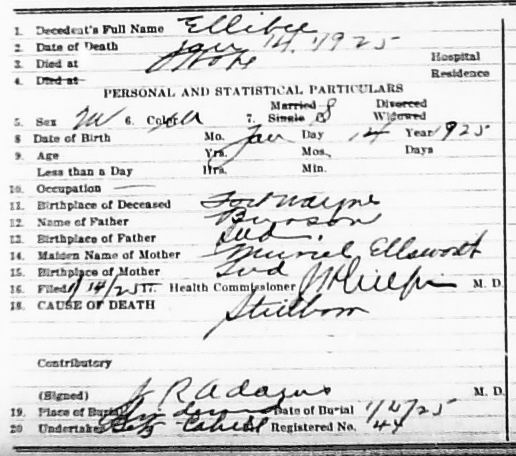 1. Decedent's Full Name Ellibee
2. Date of Death Jan 14, 1925
3. Died at Hope Hospital
4. Died at Residence
PERSONAL AND STATISTICAL PARTICULARS
5. Sex M 6. Color W 7. Married Single S Divorced Widowed
8 Date of Birth Mo. Jan Day 14 Year 1925
9. Age Yrs. Mos. Days
Less than a Day Hrs. Min.
10. Occupation —
11. Birthplace of Deceased Fort Wayne
12. Name of Father Burson
13. Birthplace of Father Ind.
14. Maiden Name of Mother Muriel Ellsworth
15. Birthplace of Mother Ind
16. Filed 1/14/25 Health Commissioner M. D.
18. CAUSE OF DEATH
Stillborn
Contributory
(Signed) J R Adams M. D.
19. Place of Burial Lindenwood Date of Burial 1/2/25
20 Undertaker Registered No. 44